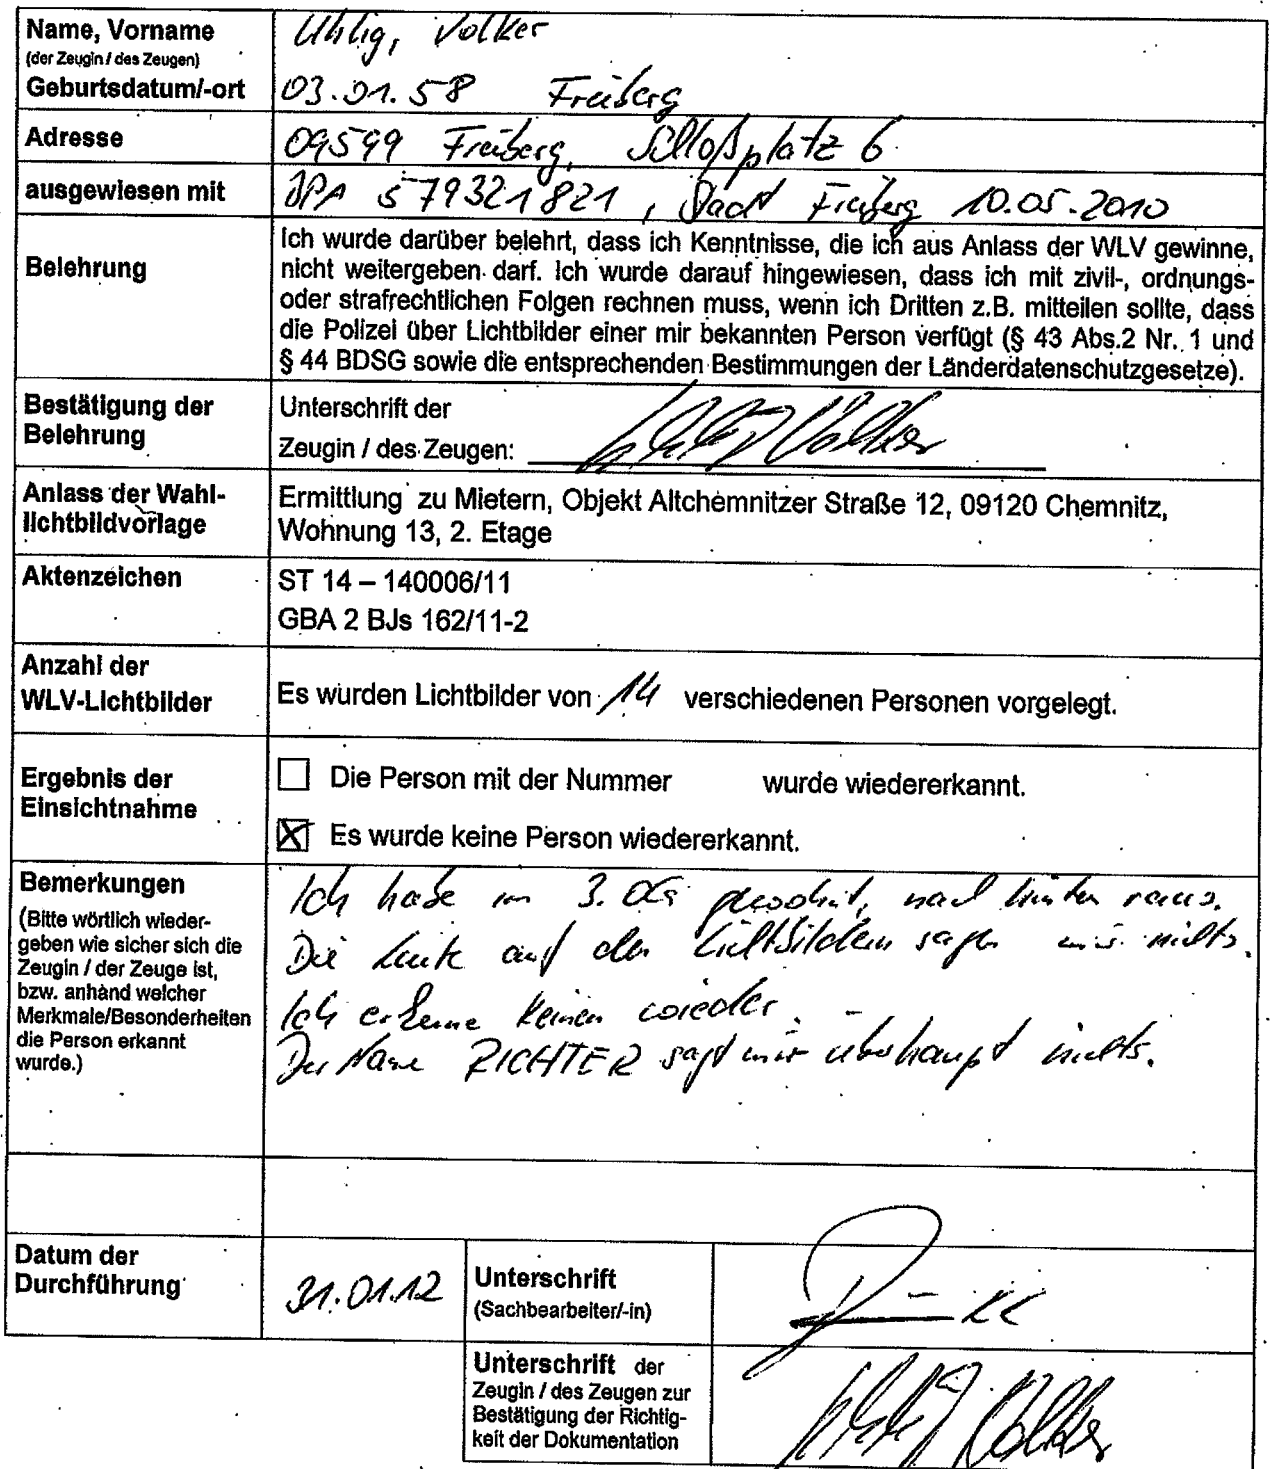 Name, Vorname
(der Zeugin / des Zeugen)
Uhlig, Volker
Geburtsdatum/-ort
03.01.58 Freiberg
Adresse
09599 Freiberg, Schloßplatz 6
ausgewiesen mit
BPA 579321821, Stadt Freiberg 10.05.2010
Belehrung
Ich wurde darüber belehrt, dass ich Kenntnisse, die ich aus Anlass der WLV gewinne,
nicht weitergeben darf. Ich wurde darauf hingewiesen, dass ich mit zivil-, ordnungs-
oder strafrechtlichen Folgen rechnen muss, wenn ich Dritten z.B. mitteilen sollte, dass
die Polizei über Lichtbilder einer mir bekannten Person verfügt (§ 43 Abs.2 Nr. 1 und
§ 44 BDSG sowie die entsprechenden Bestimmungen der Länderdatenschutzgesetze).
Bestätigung der
Belehrung
Unterschrift der
Zeugin / des Zeugen: Uhlig Volker
Anlass der Wahl-
lichtbildvorlage
Ermittlung zu Mietern, Objekt Altchemnitzer Straße 12, 09120 Chemnitz,
Wohnung 13, 2. Etage
Aktenzeichen
ST 14 – 140006/11
GBA 2 BJs 162/11-2
Anzahl der
WLV-Lichtbilder
Es wurden Lichtbilder von 14 verschiedenen Personen vorgelegt.
Ergebnis der
Einsichtnahme
Die Person mit der Nummer wurde wiedererkannt.
Es wurde keine Person wiedererkannt.
Bemerkungen
(Bitte wörtlich wieder-
geben wie sicher sich die
Zeugin / der Zeuge ist,
bzw. anhand welcher
Merkmale/Besonderheiten
die Person erkannt
wurde.)
Ich habe im 3. OG gewohnt, nach hinten raus.
Die Leute auf den Lichtbildern sagen mir nichts.
Ich erkenne keinen wieder. –
Der Name RICHTER sagt mir überhaupt nichts.
Datum der
Durchführung
31.01.12
Unterschrift
(Sachbearbeiter/-in)
Unterschrift der
Zeugin / des Zeugen zur
Bestätigung der Richtig-
keit der Dokumentation
Uhlig Volker